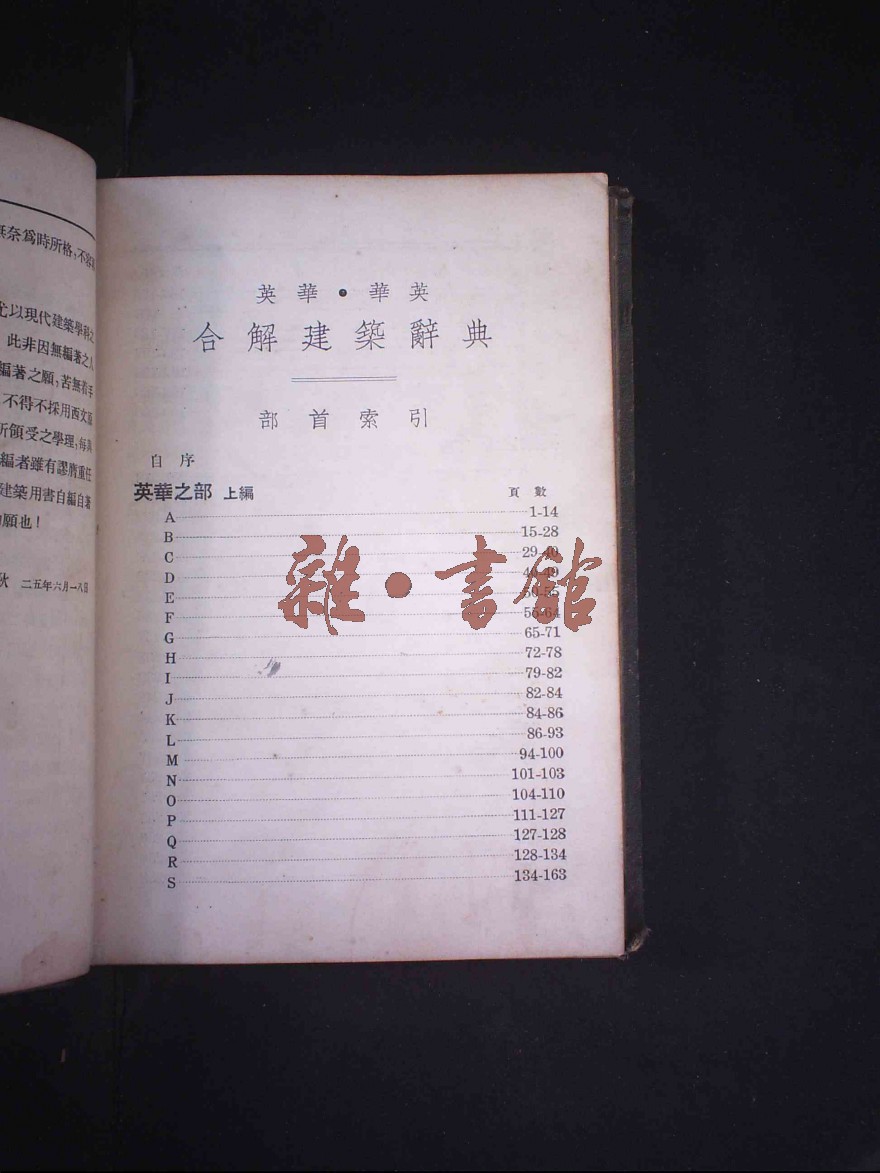 奈爲時所格,不容
以現代建築學科之
此非因無編著之人
編著之願,苦無着手
不得不採用西文
所領受之學理,每
編者雖有謬膺重任
建築用書自編自著
願也!
秋 二五年六月一八日
英華•華英
合解建築辭典
部首索引
自序
英華之部 上編 頁數
A 1-14
B 15-28
C
D
E 50-55
F 56-64
G 65-71
H 72-78
I 79-82
J 82-84
K 84-86
L 86-93
M 94-100
N 101-103
O 104-110
P 111-127
Q 127-128
R 128-134
S 134-163
雜•書館